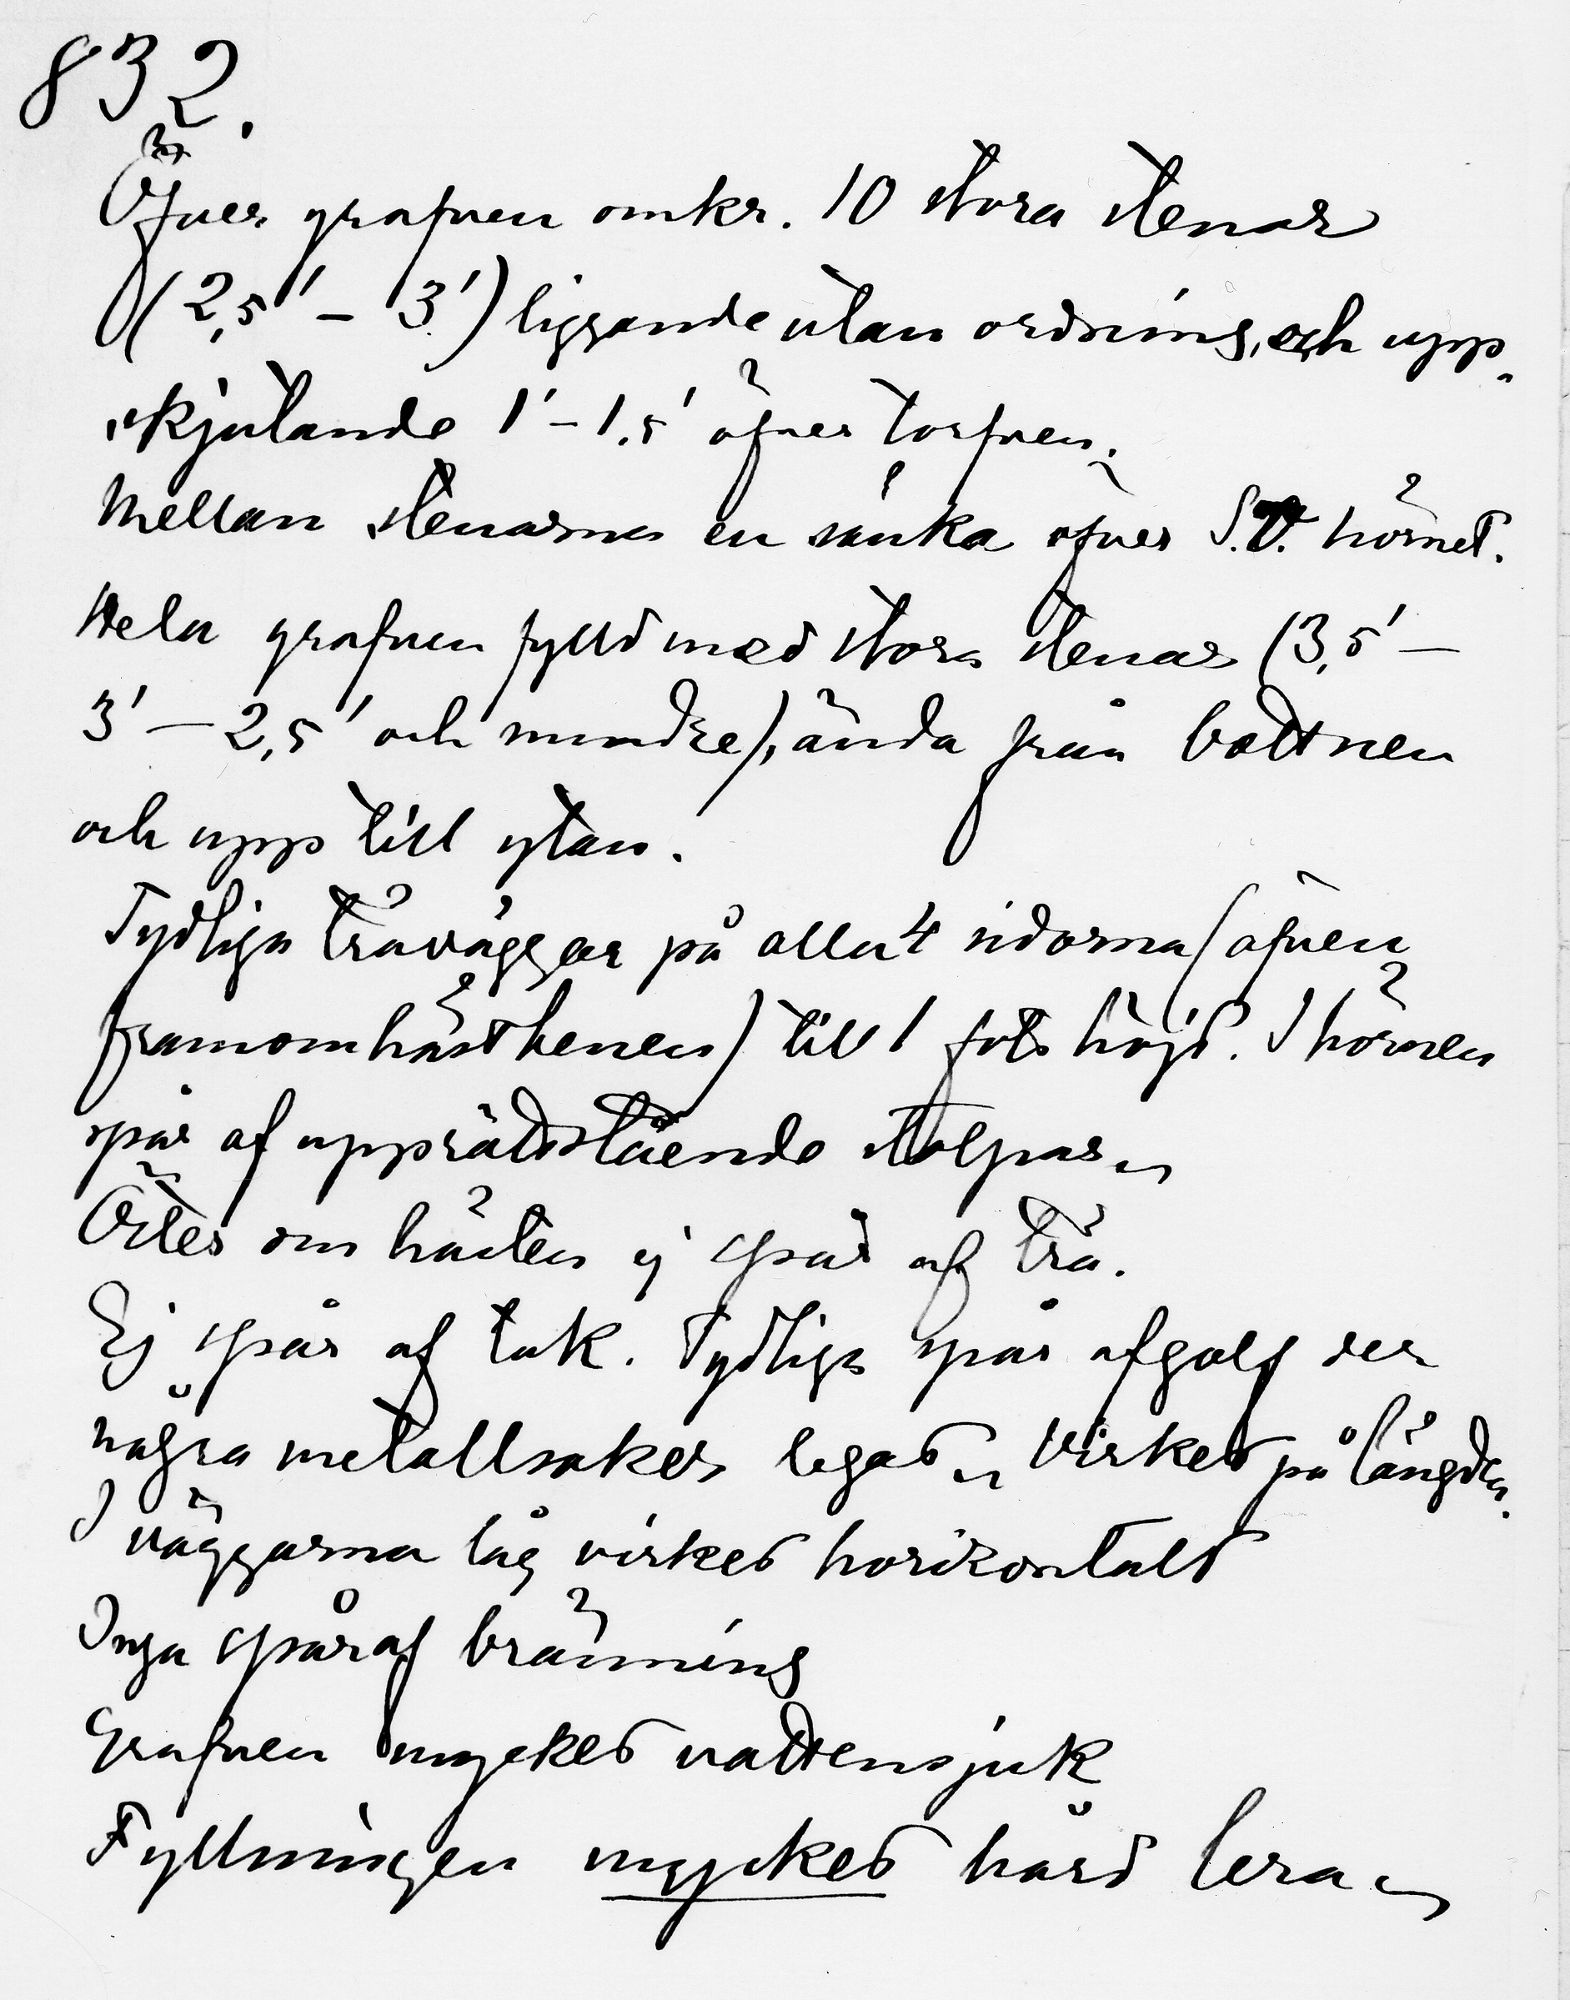 832.
Öfver grafven omkr. 10 stora stenar
(2,5' – 3') liggande utan ordning, och upp-
skjutande 1' – 1,5' öfver torfven.
Mellan stenarna en sänka öfver S.V. hörnet.
Hela grafven fylld med stora stenar (3,5' –
3' – 2,5' och mindre), ända från bottnen
och upp till ytan.
Tydliga träväggar på alla 4 sidorna (äfven
framom hästbenen) till 1 fots höjd. I hörnen
spår af upprättstående stolpar.
Öster om hästen ej spår af trä.
Ej spår af tak. Tydliga spår af golf der
några metallsaker legat. Virket på längden.
I väggarna låg virket horizontalt
Inga spår af bränning
Grafven mycket vattensjuk
Fyllningen mycket hård lera.